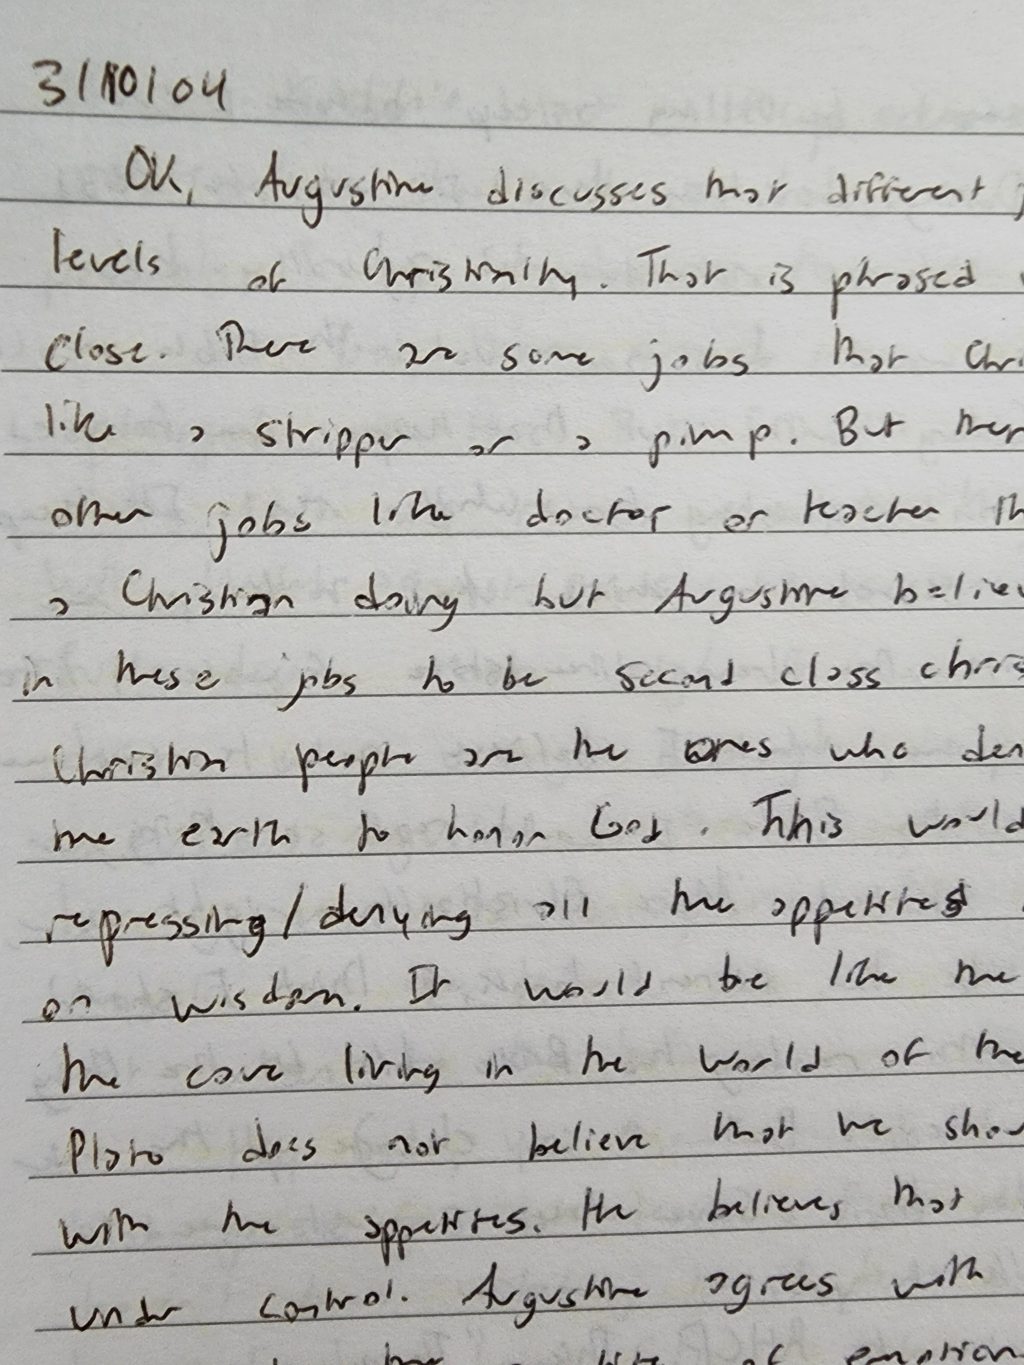 3/10/04
OK, Augustine discusses that different
levels of Christianity. That is phrased
close. There are some jobs that Chri
like a stripper or a pimp. But ther
other jobs like doctor or teacher th
a Christian doing but Augustine believ
in these jobs to be second class chris
Christian people are the ones who den
the earth to honor God. This would
repressing/denying all the appetites
on wisdom. It would be like the
the cave living in the world of the
Plato does not believe that we shou
with the appetites. He believes that
under control. Augustine agrees with
the of emotion